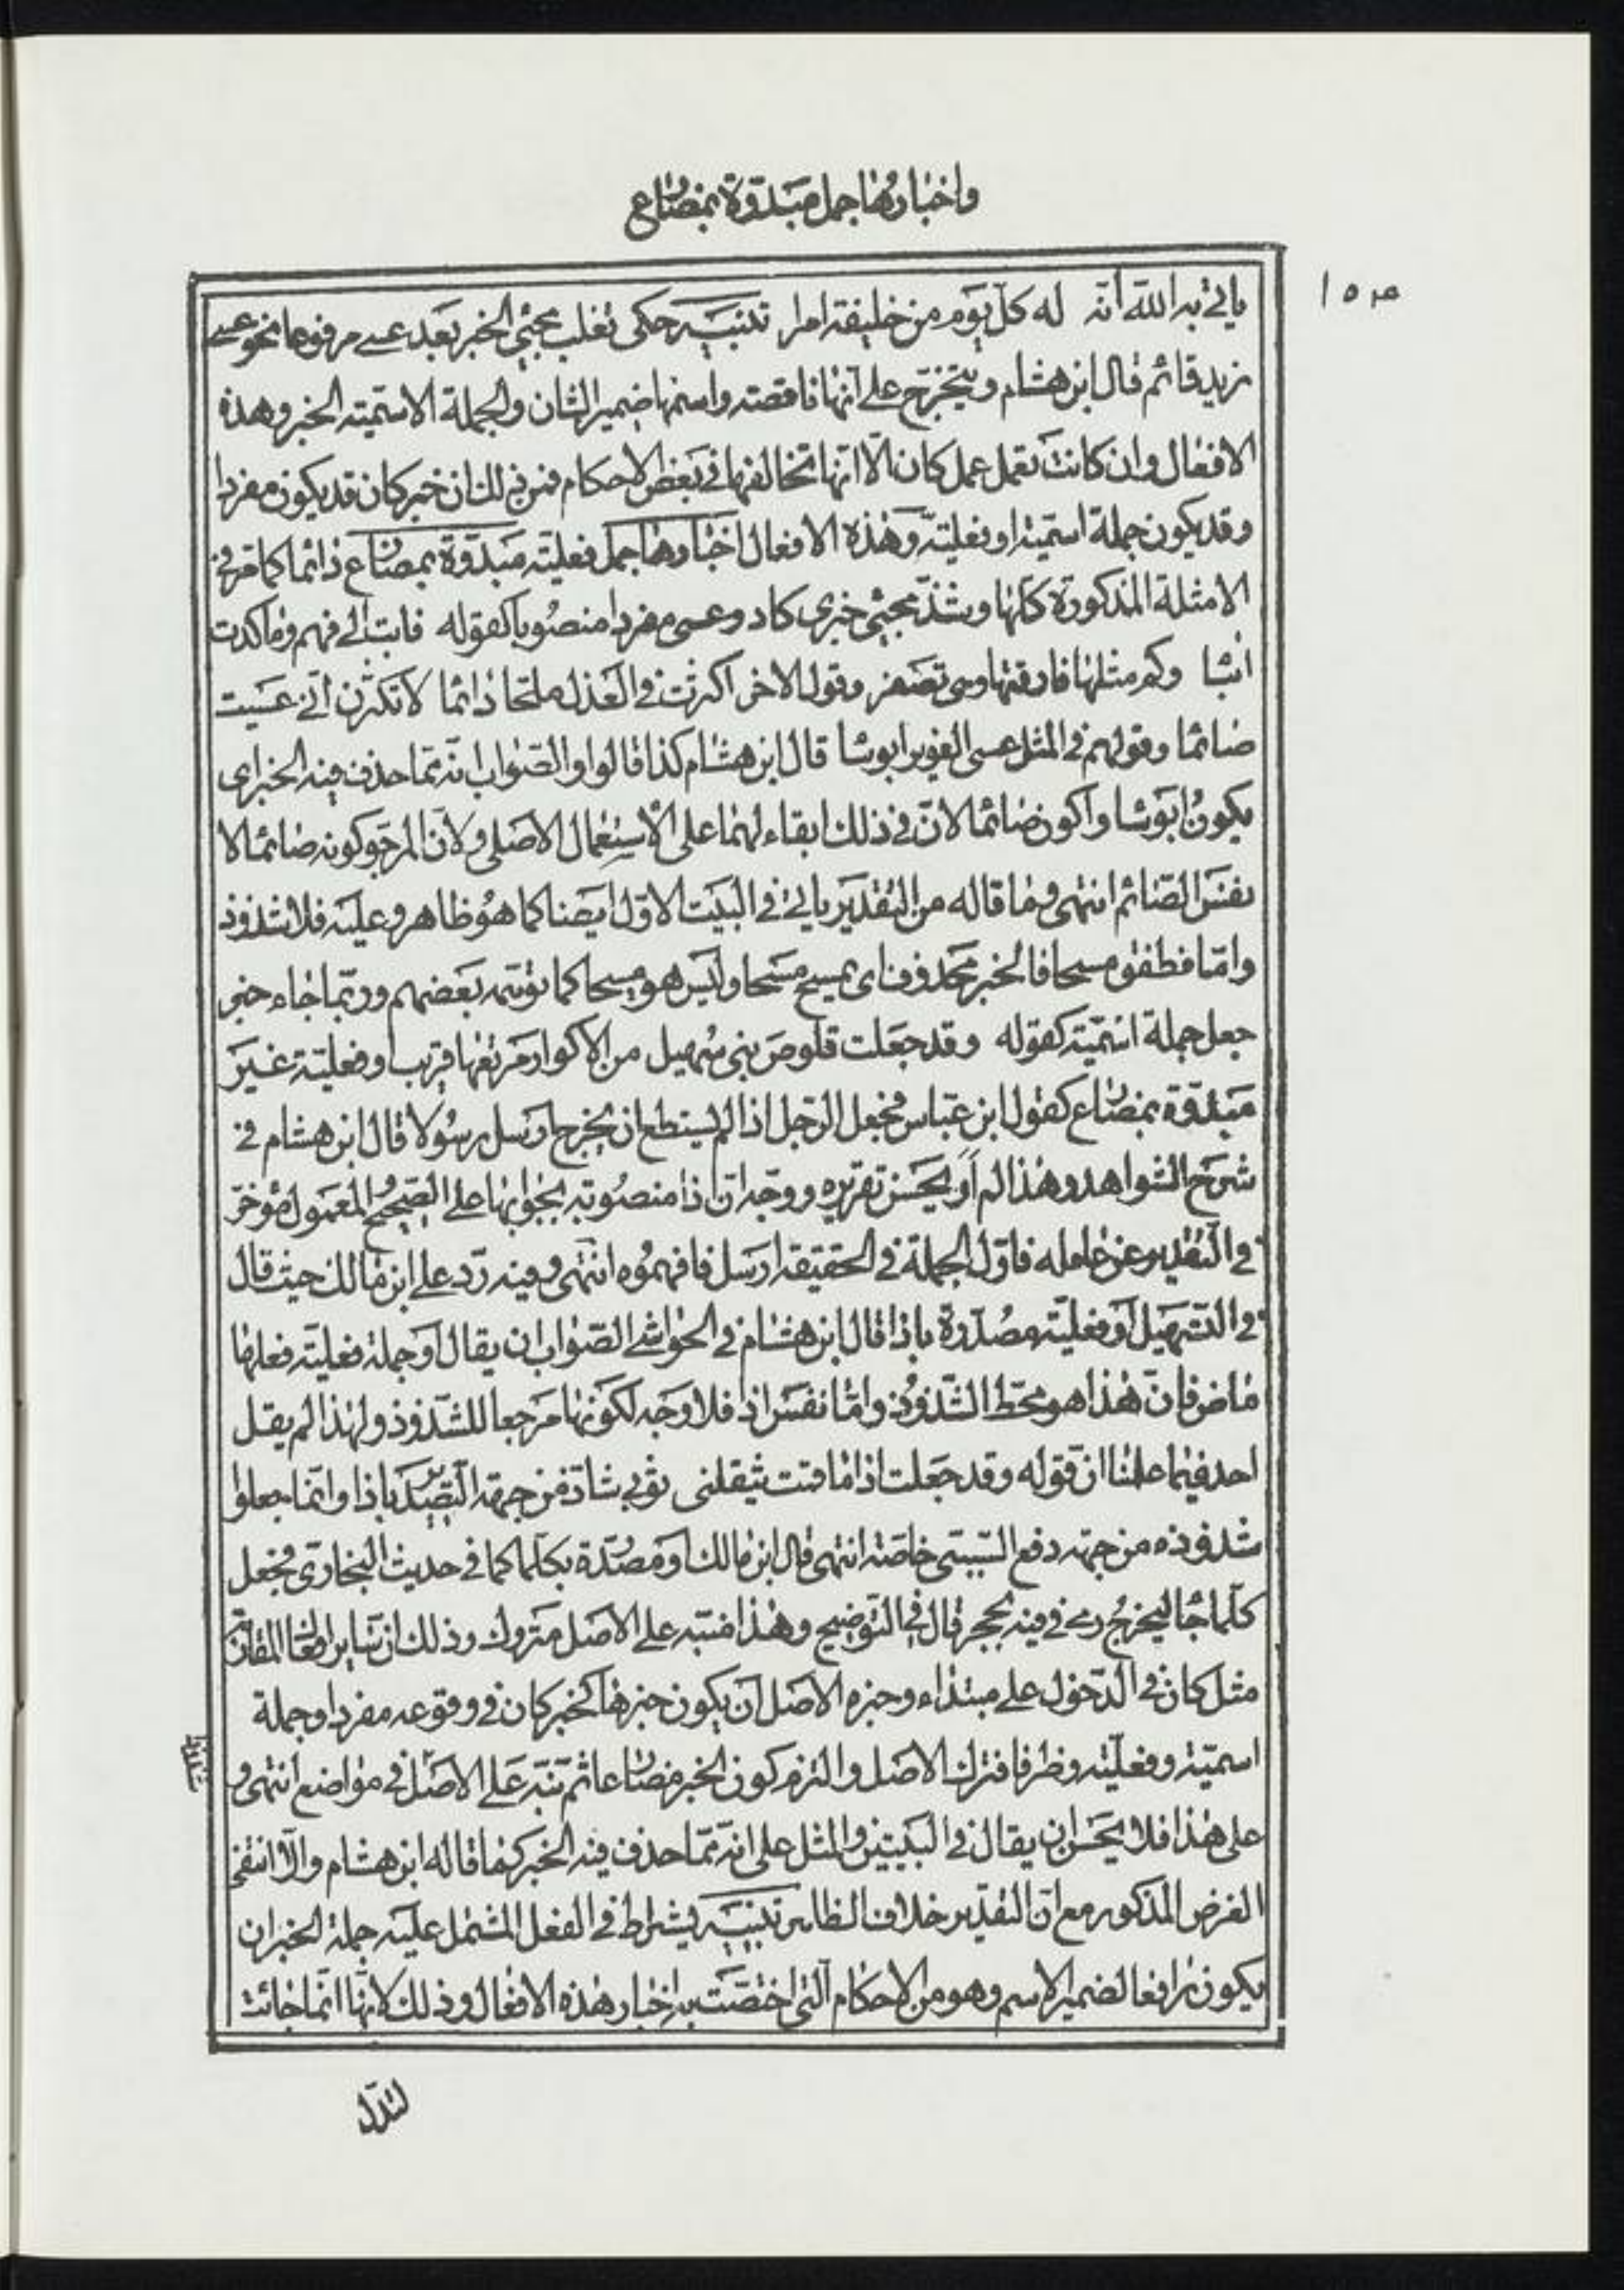 واخبارها جمل مبدوة بمضارع
١٥٣
ياتي به الله انه له كل يوم من خليقته امرا تنبيه حكى ثعلب مجيئ الخبر بعد عسى مرفوعا نحو عسى
زيد قائم قال ابن هشام ويتخرج على انها ناقصة واسمها ضمير الشان والجملة الاسمية الخبر وهذه
الافعال وان كانت تعمل عمل كان الا انها تخالفها في بعض الاحكام فمن ذلك ان خبر كان قد يكون مفردا
وقد يكون جملة اسمية او فعلية وهذه الافعال اخبارها جمل فعلية مبدوة بمضارع دائما كما مر في
الامثلة المذكورة كلها وشذ مجيئ خبري كاد وعسى مفردا منصوبا كقوله فابت الى فهم وما كدت
ائبا وكم مثلها فارقتها وهي تصفر وقول الاخر اكثرت في العذل ملحا دائما لا تكثرن اني عسيت
صائما وقولهم في المثل عسى الغوير ابوسا قال ابن هشام كذا قالوا والصواب انه مما حذف فيه الخبر اى
يكون ابوسا واكون صائما لان في ذلك ابقاء لهما على الاستعمال الاصلي ولان المرجو كونه صائما لا
نفس الصائم انتهى وما قاله من التقدير ياتي في البيت الاول ايضا كما هو ظاهر وعليه فلا شذوذ
واما فطفق مسحا فالخبر محذوف اى يمسح مسحا وليس هو مسحا كما توهمه بعضهم وربما جاء خبر
جعل جملة اسمية كقوله وقد جعلت قلوص بني سهيل من الاكوار مرتعها قريب وفعلية غير
مبدوة بمضارع كقول ابن عباس فجعل الرجل اذا لم يستطع ان يخرج ارسل رسولا قال ابن هشام في
شرح الشواهد وهذا لم ار من يحسن تقريره ووجه ان اذا منصوبة بجوابها على الصحيح والمعمول مؤخر
في التقدير عن عامله فاول الجملة في الحقيقة ارسل فافهموه انتهى وفيه رد على ابن مالك حيث قال
في التسهيل او فعلية مصدرة باذا قال ابن هشام في الحواشي الصواب ان يقال او جملة فعلية فعلها
ماض فان هذا هو محط الشذوذ واما نفس اذا فلا وجه لكونها مرجعا للشذوذ ولهذا لم يقل
احد فيما علمنا ان قوله وقد جعلت اذا ما قمت يثقلني ثوبي شاذ من جهة التصدير باذا وانما جعلوا
شذوذه من جهة رفع السببي خاصة انتهى قال ابن مالك او مصدرة بكلما كما في حديث البخاري فجعل
كلما جاء ليخرج رمى في فيه بحجر قال في التوضيح وهذا منبه على الاصل متروك وذلك ان سائر افعال المقاربة
مثل كان في الدخول على مبتداء وخبره الاصل ان يكون خبرها كخبر كان في وقوعه مفردا وجملة
اسمية وفعلية وظرفا فترك الاصل والتزم كون الخبر مضارعا ثم نبه على الاصل في مواضع انتهى و
على هذا فلا يحسن ان يقال في البيتين والمثل على انه مما حذف فيه الخبر كما قاله ابن هشام والا انتفى
الغرض المذكور مع ان التقدير خلاف الظاهر تنبيه يشترط في الفعل المشتمل عليه جملة الخبر ان
يكون رافعا لضمير الاسم وهو من الاحكام التي اختصت به اخبار هذه الافعال وذلك لانها انما جائت
لتدل